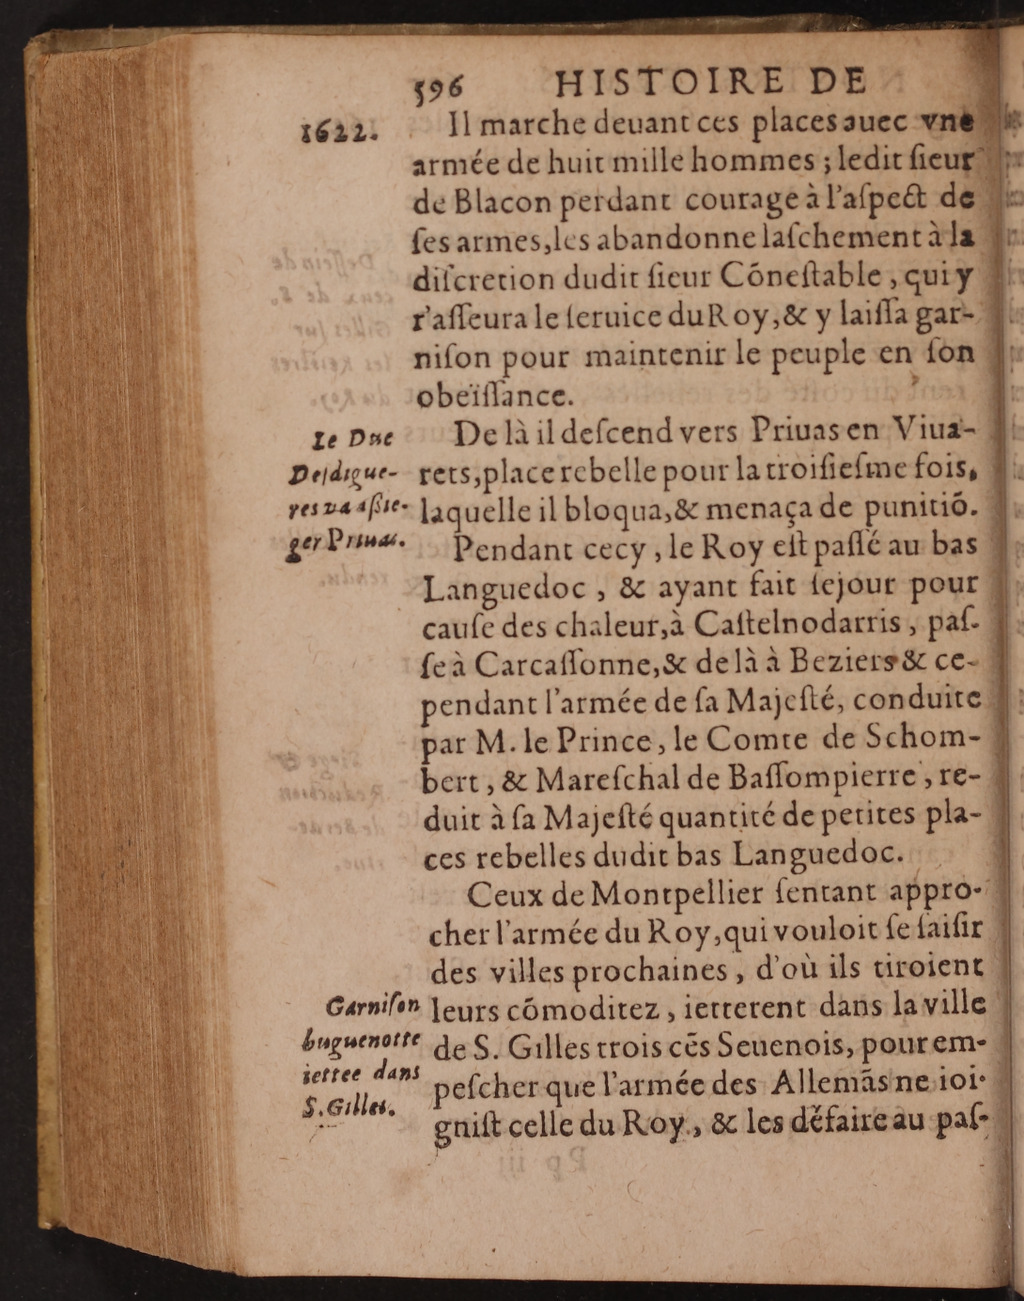 596 HISTOIRE DE
1622.
Il marche deuant ces places auec vne
armée de huit mille hommes ; ledit ſieur
de Blacon perdant courage à l'aſpect de
ſes armes, les abandonne laſchement à la
diſcretion dudit ſieur Cōneſtable, qui y
r'aſſeura le ſeruice du Roy, & y laiſſa gar-
niſon pour maintenir le peuple en ſon
obeïſſance.
Le Duc
Deſdigue-
res va aſsie-
ger Priuas.
De là il deſcend vers Priuas en Viua-
rets, place rebelle pour la troiſieſme fois,
laquelle il bloqua, & menaça de punitiō.
Pendant cecy, le Roy eſt paſſé au bas
Languedoc, & ayant fait ſejour pour
cauſe des chaleur, à Caſtelnodarris, paſ-
ſe à Carcaſſonne, & de là à Beziers & ce-
pendant l'armée de ſa Majeſté, conduite
par M. le Prince, le Comte de Schom-
bert, & Mareſchal de Baſſompierre, re-
duit à ſa Majeſté quantité de petites pla-
ces rebelles dudit bas Languedoc.
Ceux de Montpellier ſentant appro-
cher l'armée du Roy, qui vouloit ſe ſaiſir
des villes prochaines, d'où ils tiroient
leurs cōmoditez, ietterent dans la ville
de S. Gilles trois cēs Seuenois, pour em-
peſcher que l'armée des Allemās ne ioi-
gniſt celle du Roy, & les défaire au paſ-
Garniſon
huguenotte
iettee dans
S. Gilles.